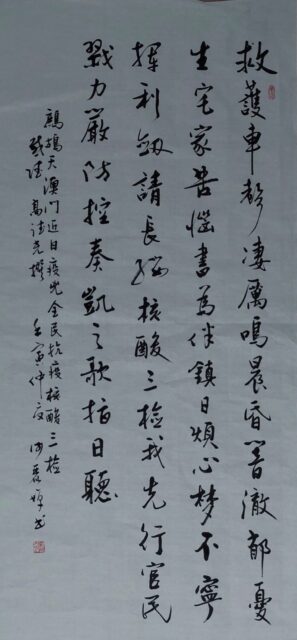 救護車聲凄厲鳴晨昏響澈郁憂
生宅家苦惱書為伴鎮日煩心梦不寧
揮利劔請長纓核酸三檢我先行官民
戮力嚴防控奏凱之歌指日聽
鷓鴣天澳門近日疫兇全民抗疫核酸三檢
撰 壬寅仲夏 書